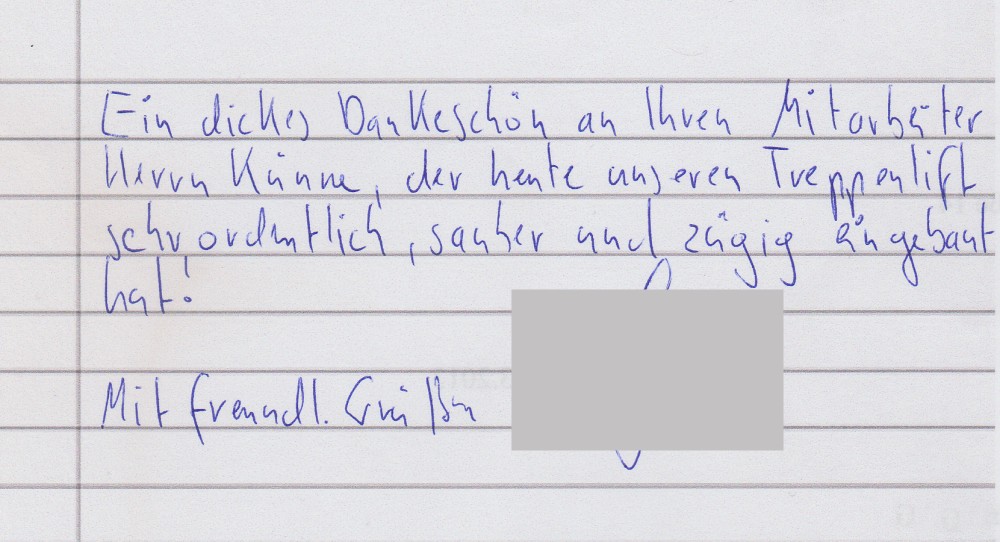 Ein dickes Dankeschön an Ihren Mitarbeiter
Herrn Künne, der heute unseren Treppenlift
sehr ordentlich, sauber und zügig eingebaut
hat!
Mit freundl. Grüßen